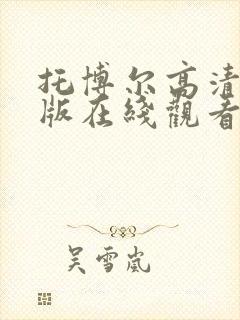 托博尔高清
版在线觀看
吴雪岚